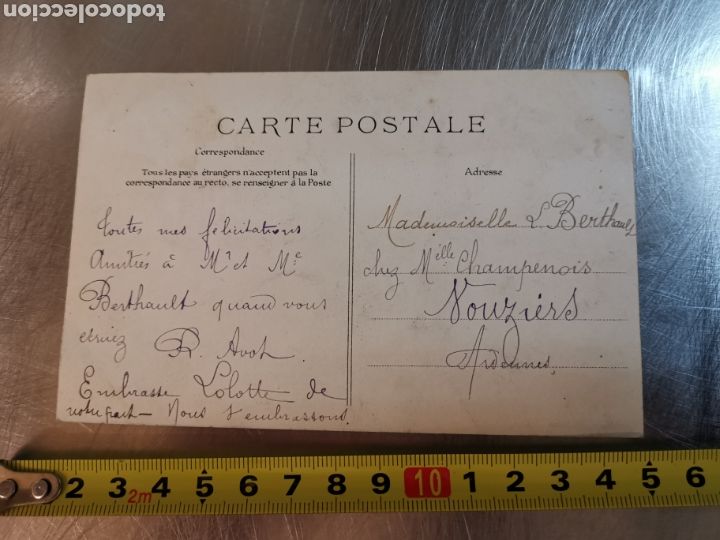 todocoleccion
CARTE POSTALE
Correspondance
Tous les pays étrangers n'acceptent pas la
correspondance au recto, se renseigner à la Poste
Adresse
Toutes mes félicitations
Amitiés à Mr et Me
Berthault quand vous
R. Avot
Embrasse Lolotte de
notre part - Nous t'embrassons
Mademoiselle L Berthault
chez Melle Champenois
Vouziers
Ardennes
2 3 2m 4 5 6 7 8 9 10 1 2 3 4 5 6